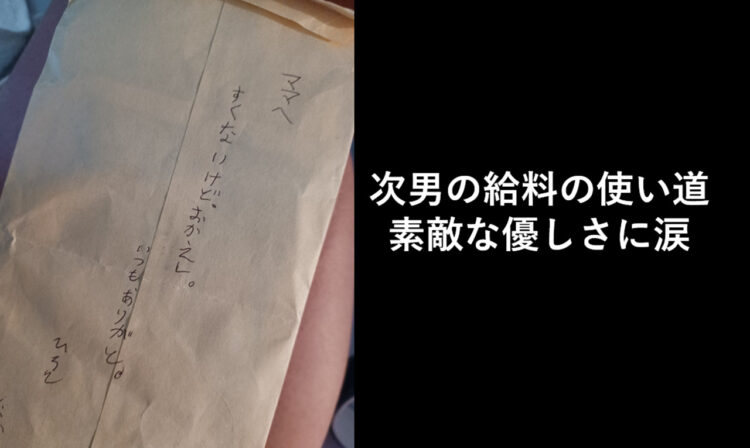 ママへ
すくないけど。おかえし。
いつもありがと。
次男の給料の使い道
素敵な優しさに涙